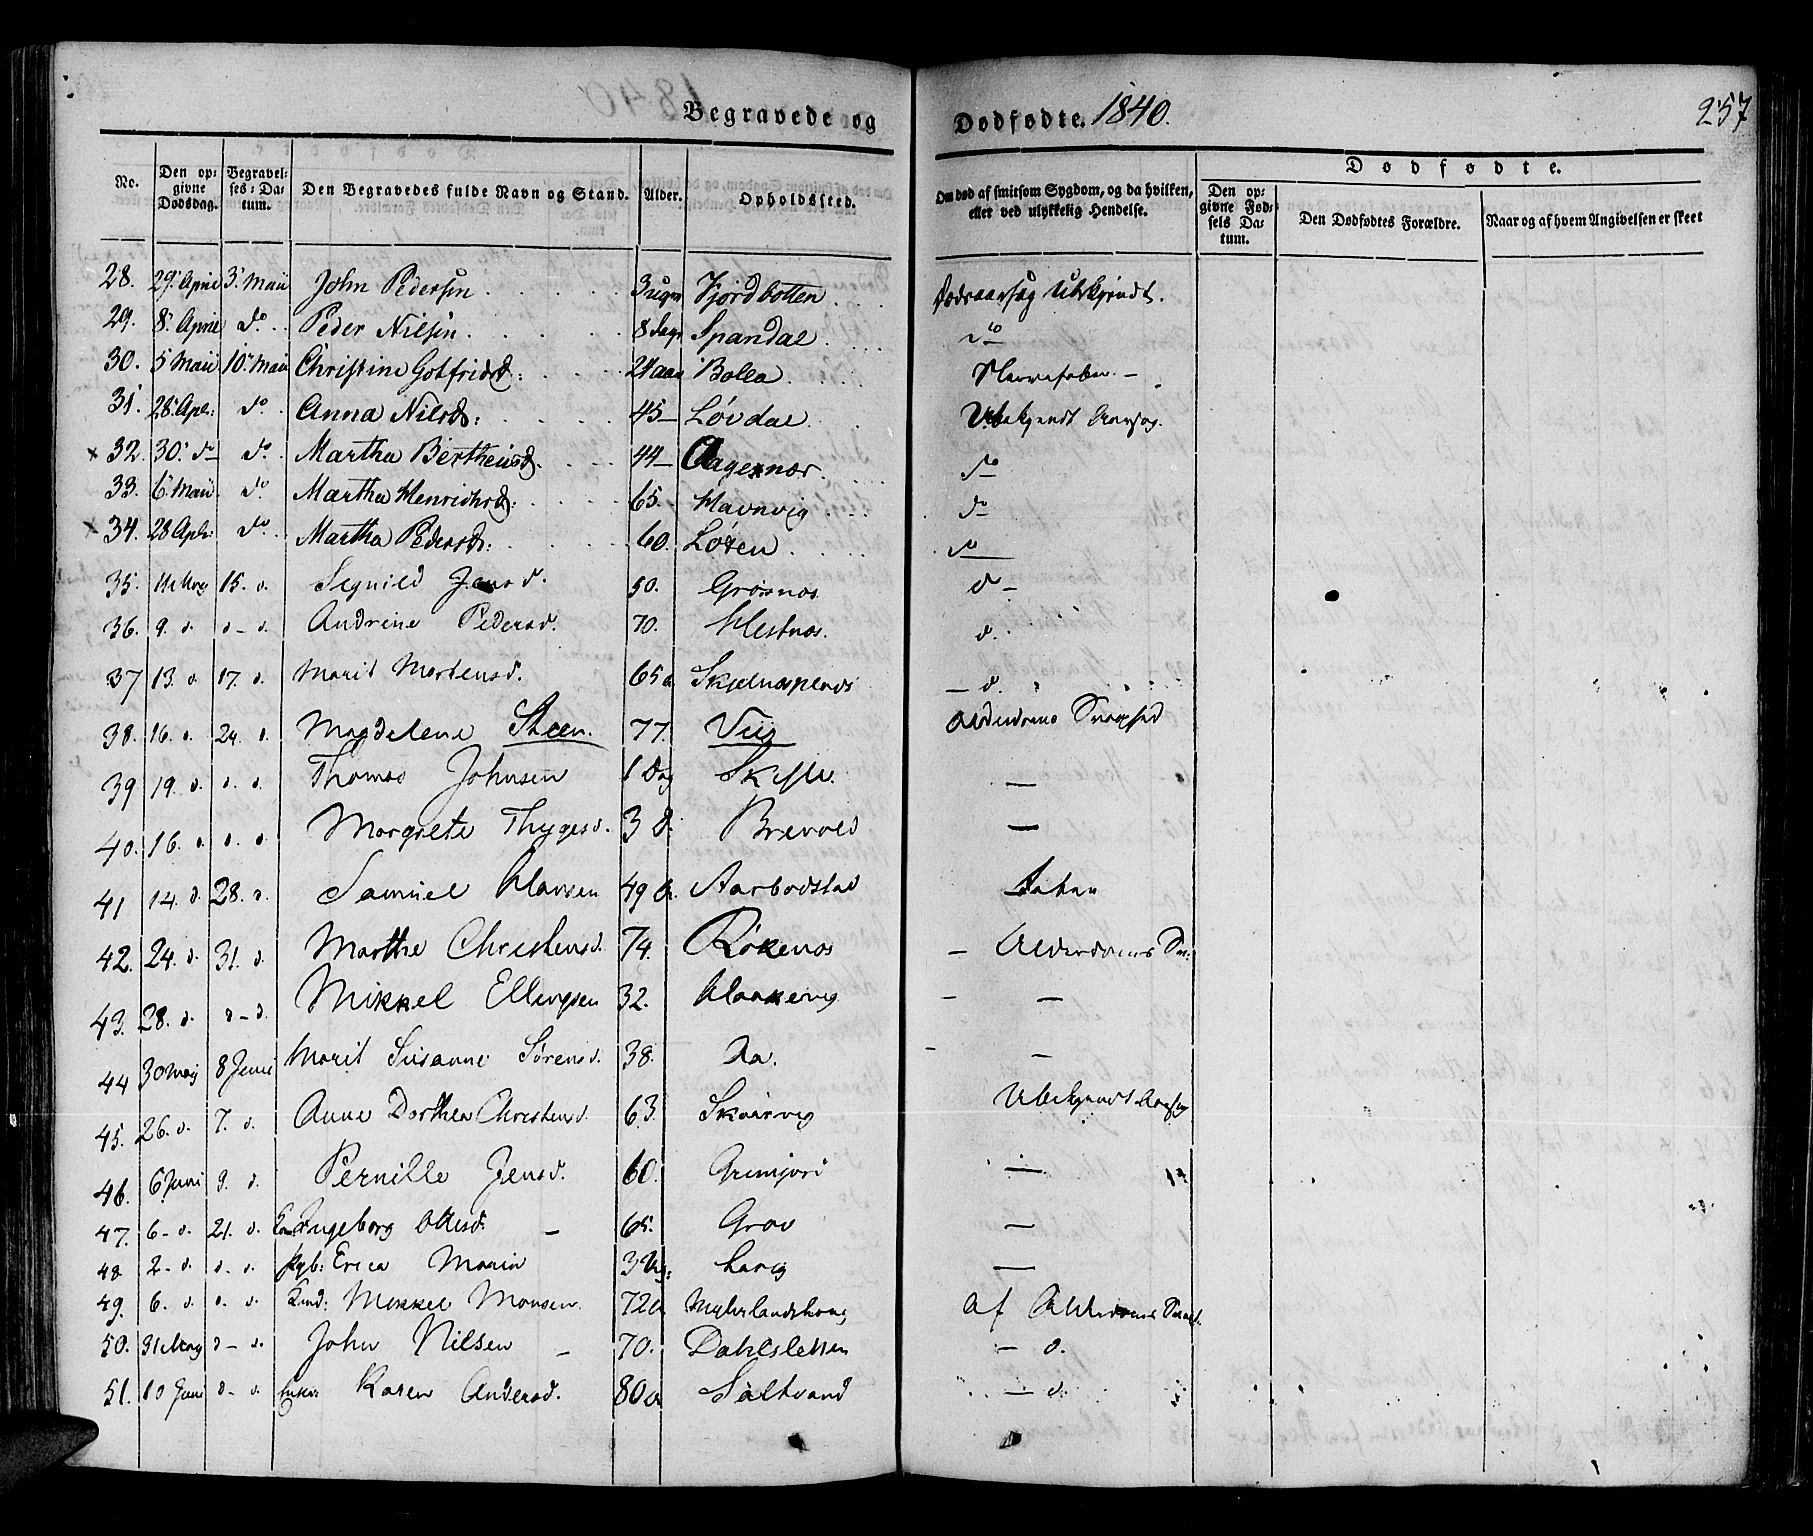 Begravede og Dødfødte. 1840. 257
No. Den opgivne Dødsdag. Begravelses-Datum. Den Begravedes fulde Navn og Stand. Alder. Opholdssted. Om død af smitsom Sygdom, og da hvilken, eller ved ulykkelig Hendelse. Dødfødte. Den opgivne Fødsels Datum. Den Dødfødtes Forældre. Naar og af hvem Angivelsen er skeet
28. 29. April 3. Maii John Pedersen 3 ugr Fjordbotten Ubekjendt.
29. 8. April do. Peder Nilsen 8 dage Spandal do
30. 5 Maii 10. Maii Christine Gotfridsd: 24 aar Bolla
31. 28. Apl: do. Anna Nilsd: 45 Løvdal Ubekjendt Aarsag.
x 32. 30. do do. Martha Bertheusd. 44 Aagernæs do
33. 6. Maii do. Martha Henrichsd: 65. Havnvig do
x 34. 28 Apl: do Martha Pedersd: 60. Løsen do
35. 11 May 15. d. Signild Jensd. 50. Grøsnæs d
36. 9. d. d - d. Andrine Pedersd. 70. Hestnæs d.
37 13. d 17. d. Marit Mortensd. 65 a d.
38. 16. d. 24. d. Magdelene Steen. 77. Viig Alderdoms Svaghed
39 19. d. d. d. Thomas Johnsen 1 Dag —
40. 16. d. d. d. Margrete Thygesd. 3 d. Brevold —
41 14. d. 28. d. Samuel Hansen 49 a. Aarbodstad
42. 24. d. 31. d. Marthe Christensd. 74. Røkenæs — Alderdoms Sv:
43. 28. d. d - d. Mikkel Ellingsen 32. Haakevig — —
44 30 May 8 Juni Marit Susanne Sørensd. 38. Aa. — —
45. 26. d. 7. d. Anne Dorthea Christensd. 63. Skaarvig Ubekjendt Aarsag
46. 6 Juni 9. d. Pernille Jensd. 60. —
47. 6 - d. 21. d. Ingeborg Olesd. — 65. Grov —
48 2 - d. d - d. Erica Maria 3 Larig —
49. 6. d. d. d. Mikkel Monsen 72 a af Alderdoms
50. 31 May d - d. John Nilsen — 70. Dahlsletten — d.
51. 10 Juni d - d. Enke Karen Andersd. 80 a Saltvand — d.